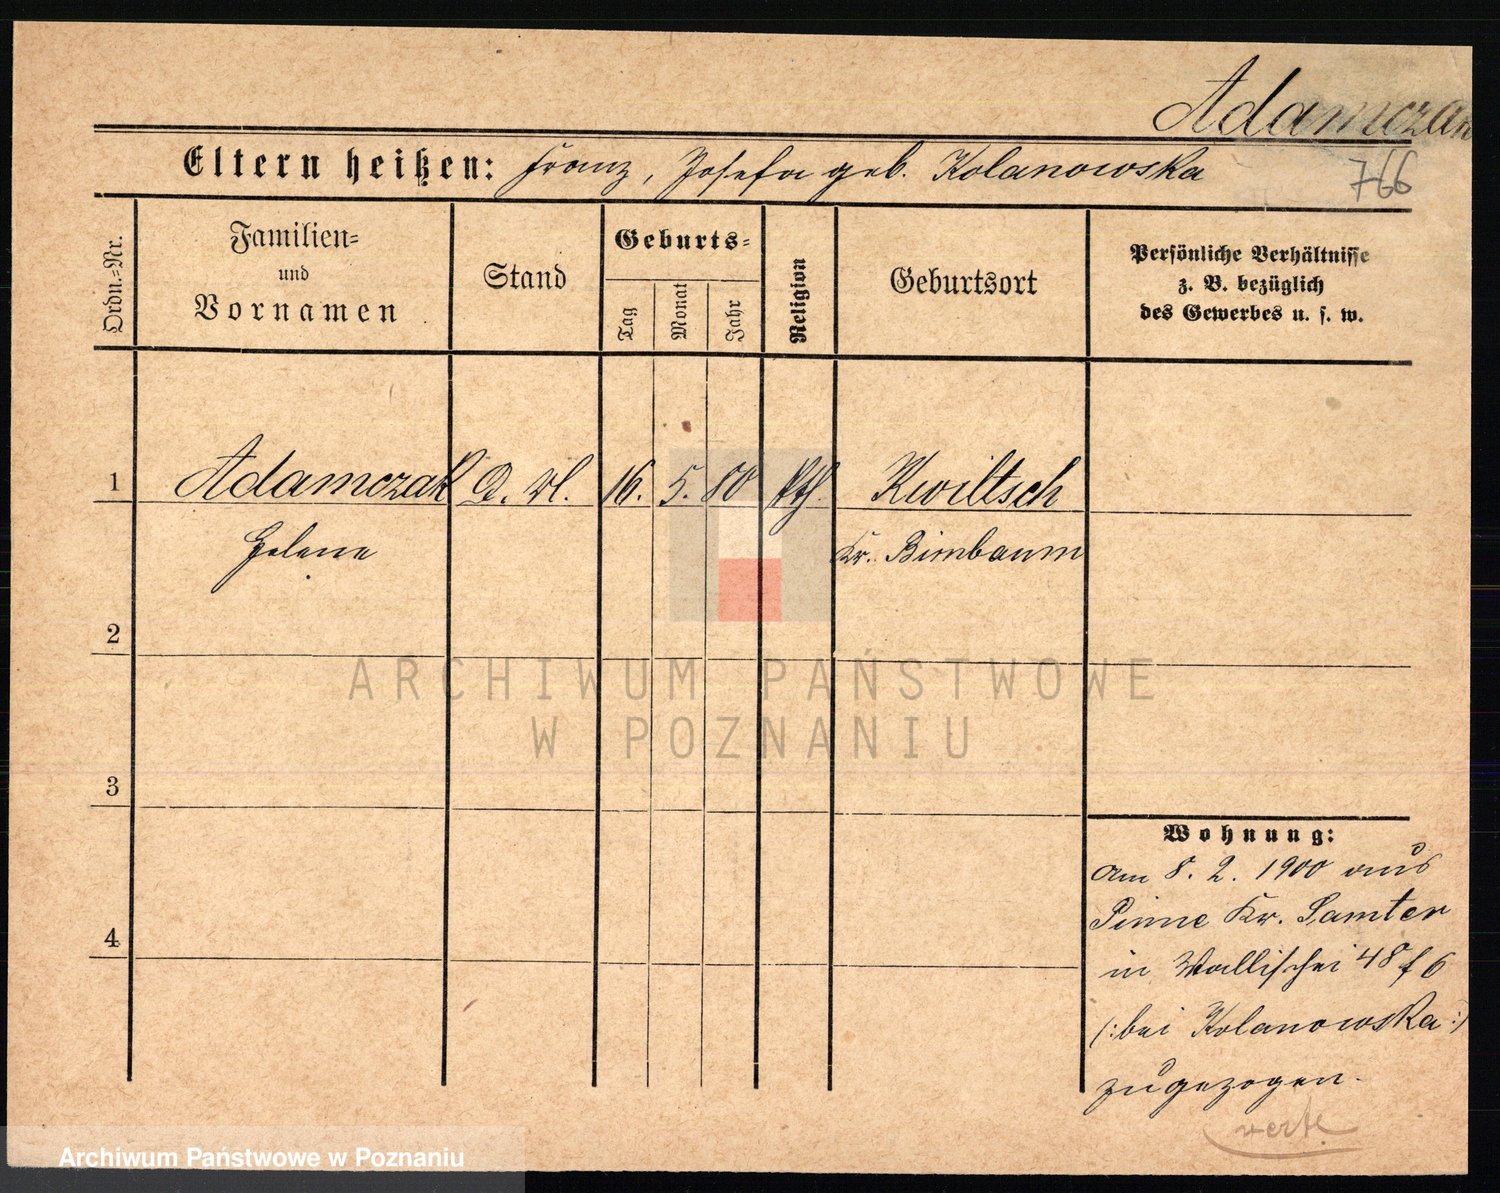 Adamczak
Eltern heißen: Franz, Josefa geb. Kolanowska
766
Ordn.=Nr.
Familien=
und
Vornamen
Stand
Geburts=
Tag
Monat
Jahr
Religion
Geburtsort
Persönliche Verhältnisse
z. B. bezüglich
des Gewerbes u. s. w.
1 Adamczak 16. 5. 80 kth. Kwiltsch
Helene Kr. Birnbaum
2
3
4
Wohnung:
am 8. 2. 1900 aus
Pinne Kr. Samter
in Wallischei 48 f 6
(: bei Kolanowska :)
zugezogen.
verte
ARCHIWUM PAŃSTWOWE
W POZNANIU
Archiwum Państwowe w Poznaniu